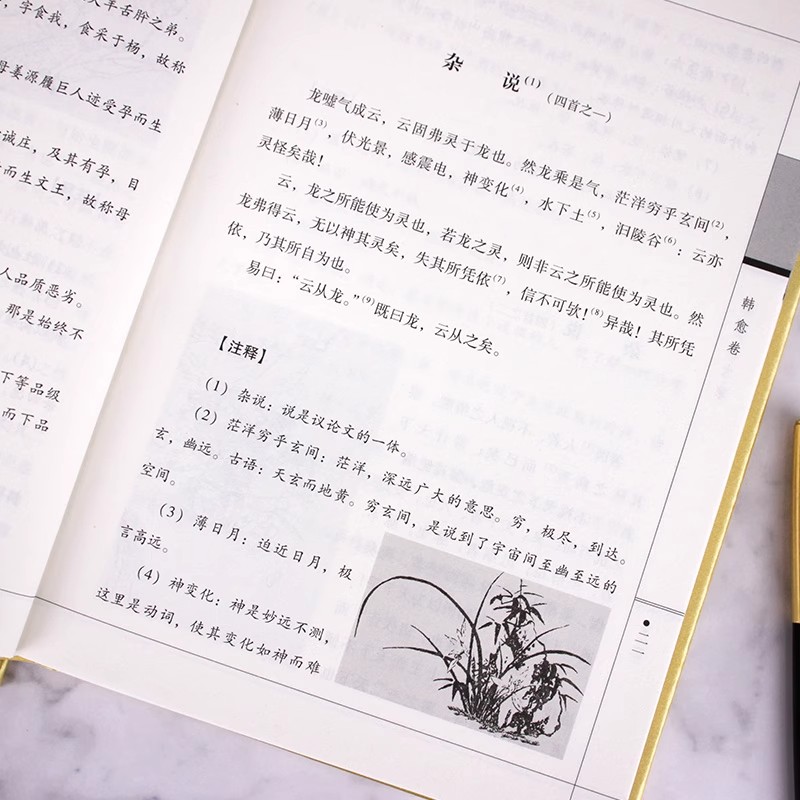 大羊舌肸之弟。
，字食我，食采于杨，故称
母姜源履巨人迹受孕而生
诚庄，及其有孕，目
而生文王，故称母
人品质恶劣。
那是始终不
下等品级
而下品
杂 说(1)（四首之一）
龙嘘气成云，云固弗灵于龙也。然龙乘是气，茫洋穷乎玄间(2)，
薄日月(3)，伏光景，感震电，神变化(4)，水下土(5)，汩陵谷(6)：云亦
灵怪矣哉！
云，龙之所能使为灵也，若龙之灵，则非云之所能使为灵也。然
龙弗得云，无以神其灵矣，失其所凭依(7)，信不可欤！(8)异哉！其所凭
依，乃其所自为也。
易曰：“云从龙。”(9)既曰龙，云从之矣。
【注释】
（1）杂说：说是议论文的一体。
（2）茫洋穷乎玄间：茫洋，深远广大的意思。穷，极尽，到达。
玄，幽远。古语：天玄而地黄。穷玄间，是说到了宇宙间至幽至远的
空间。
（3）薄日月：迫近日月，极
言高远。
（4）神变化：神是妙远不测，
这里是动词，使其变化如神而难
韩愈卷
·二一